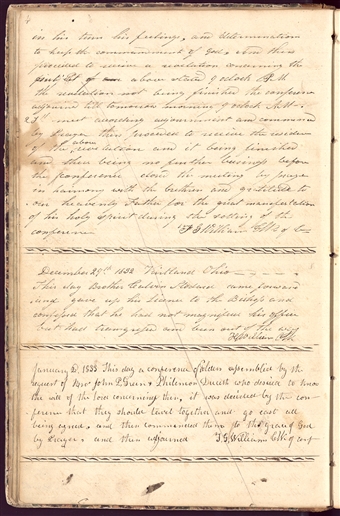 in his turn his feelings, and determination
to keep the commandment of God. — then
proceded to receive a revelation concerning the
above stated 9 oclock P.M
the revelation not being finished the conference
adjourned till tomorrow morning 9 oclock A.M.
28th met according adjournment and commenced
by prayer then proceded to receive the residue
of the above revelation and it being finished
and there being no further business before
the conference closed the meeting by prayer
in harmony with the brethren and gratitude to
our heavenly Father for the great manifestation
of his holy Spirit during the setting of the
conference F G Williams Clk of Con
December 29th 1832 Kirtland Ohio
This day Brother Calvin Stodard came forward
and gave up his License to the Bishop and
confessed that he had not magnified his office
but had transgressed and been out of the way
F G Williams Clk
January 2d. 1833 This day a conference of elders assembled by the
request of Bro John P. Green & Philemon Duzett who desired to know
the will of the Lord concerning them, it was decided by the con-
ference that they should travel together and go east all
being agreed, and then commended them to the grace of God
by prayer and then adjourned F. G. Williams Clk of conf